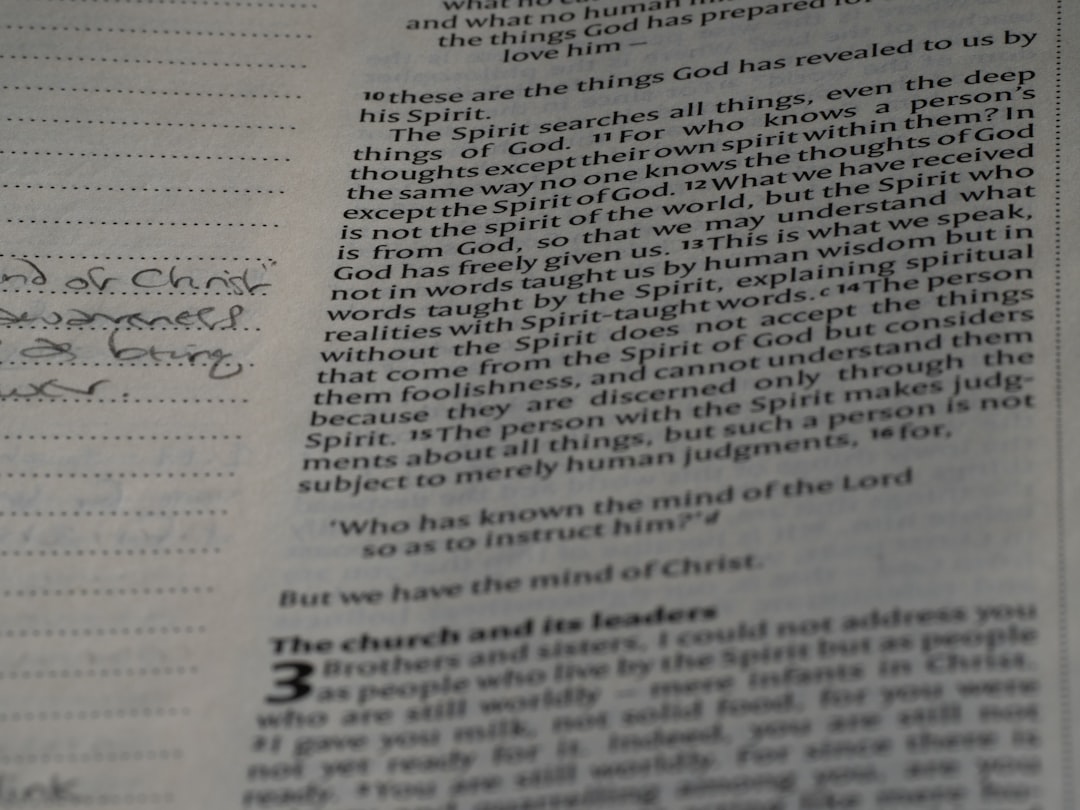 what no
and what no human
the things God has prepared for
love him —
10 these are the things God has revealed to us by
his Spirit.
The Spirit searches all things, even the deep
things of God. 11 For who knows a person's
thoughts except their own spirit within them? In
the same way no one knows the thoughts of God
except the Spirit of God. 12 What we have received
is not the spirit of the world, but the Spirit who
is from God, so that we may understand what
God has freely given us. 13 This is what we speak,
not in words taught us by human wisdom but in
words taught by the Spirit, explaining spiritual
realities with Spirit-taught words. c 14 The person
without the Spirit does not accept the things
that come from the Spirit of God but considers
them foolishness, and cannot understand them
because they are discerned only through the
Spirit. 15 The person with the Spirit makes judg-
ments about all things, but such a person is not
subject to merely human judgments, 16 for,
'Who has known the mind of the Lord
so as to instruct him?' d
But we have the mind of Christ.
The church and its leaders
3 Brothers and sisters, I could not address you
as people who live by the Spirit but as people
who are still worldly — mere infants in Christ.
2 I gave you milk, not solid food, for you were
not yet ready for it. Indeed, you are still not
ready. 3 You are still worldly. For since there is
and quarrelling among you, are you
of Christ"
awareness
being
link